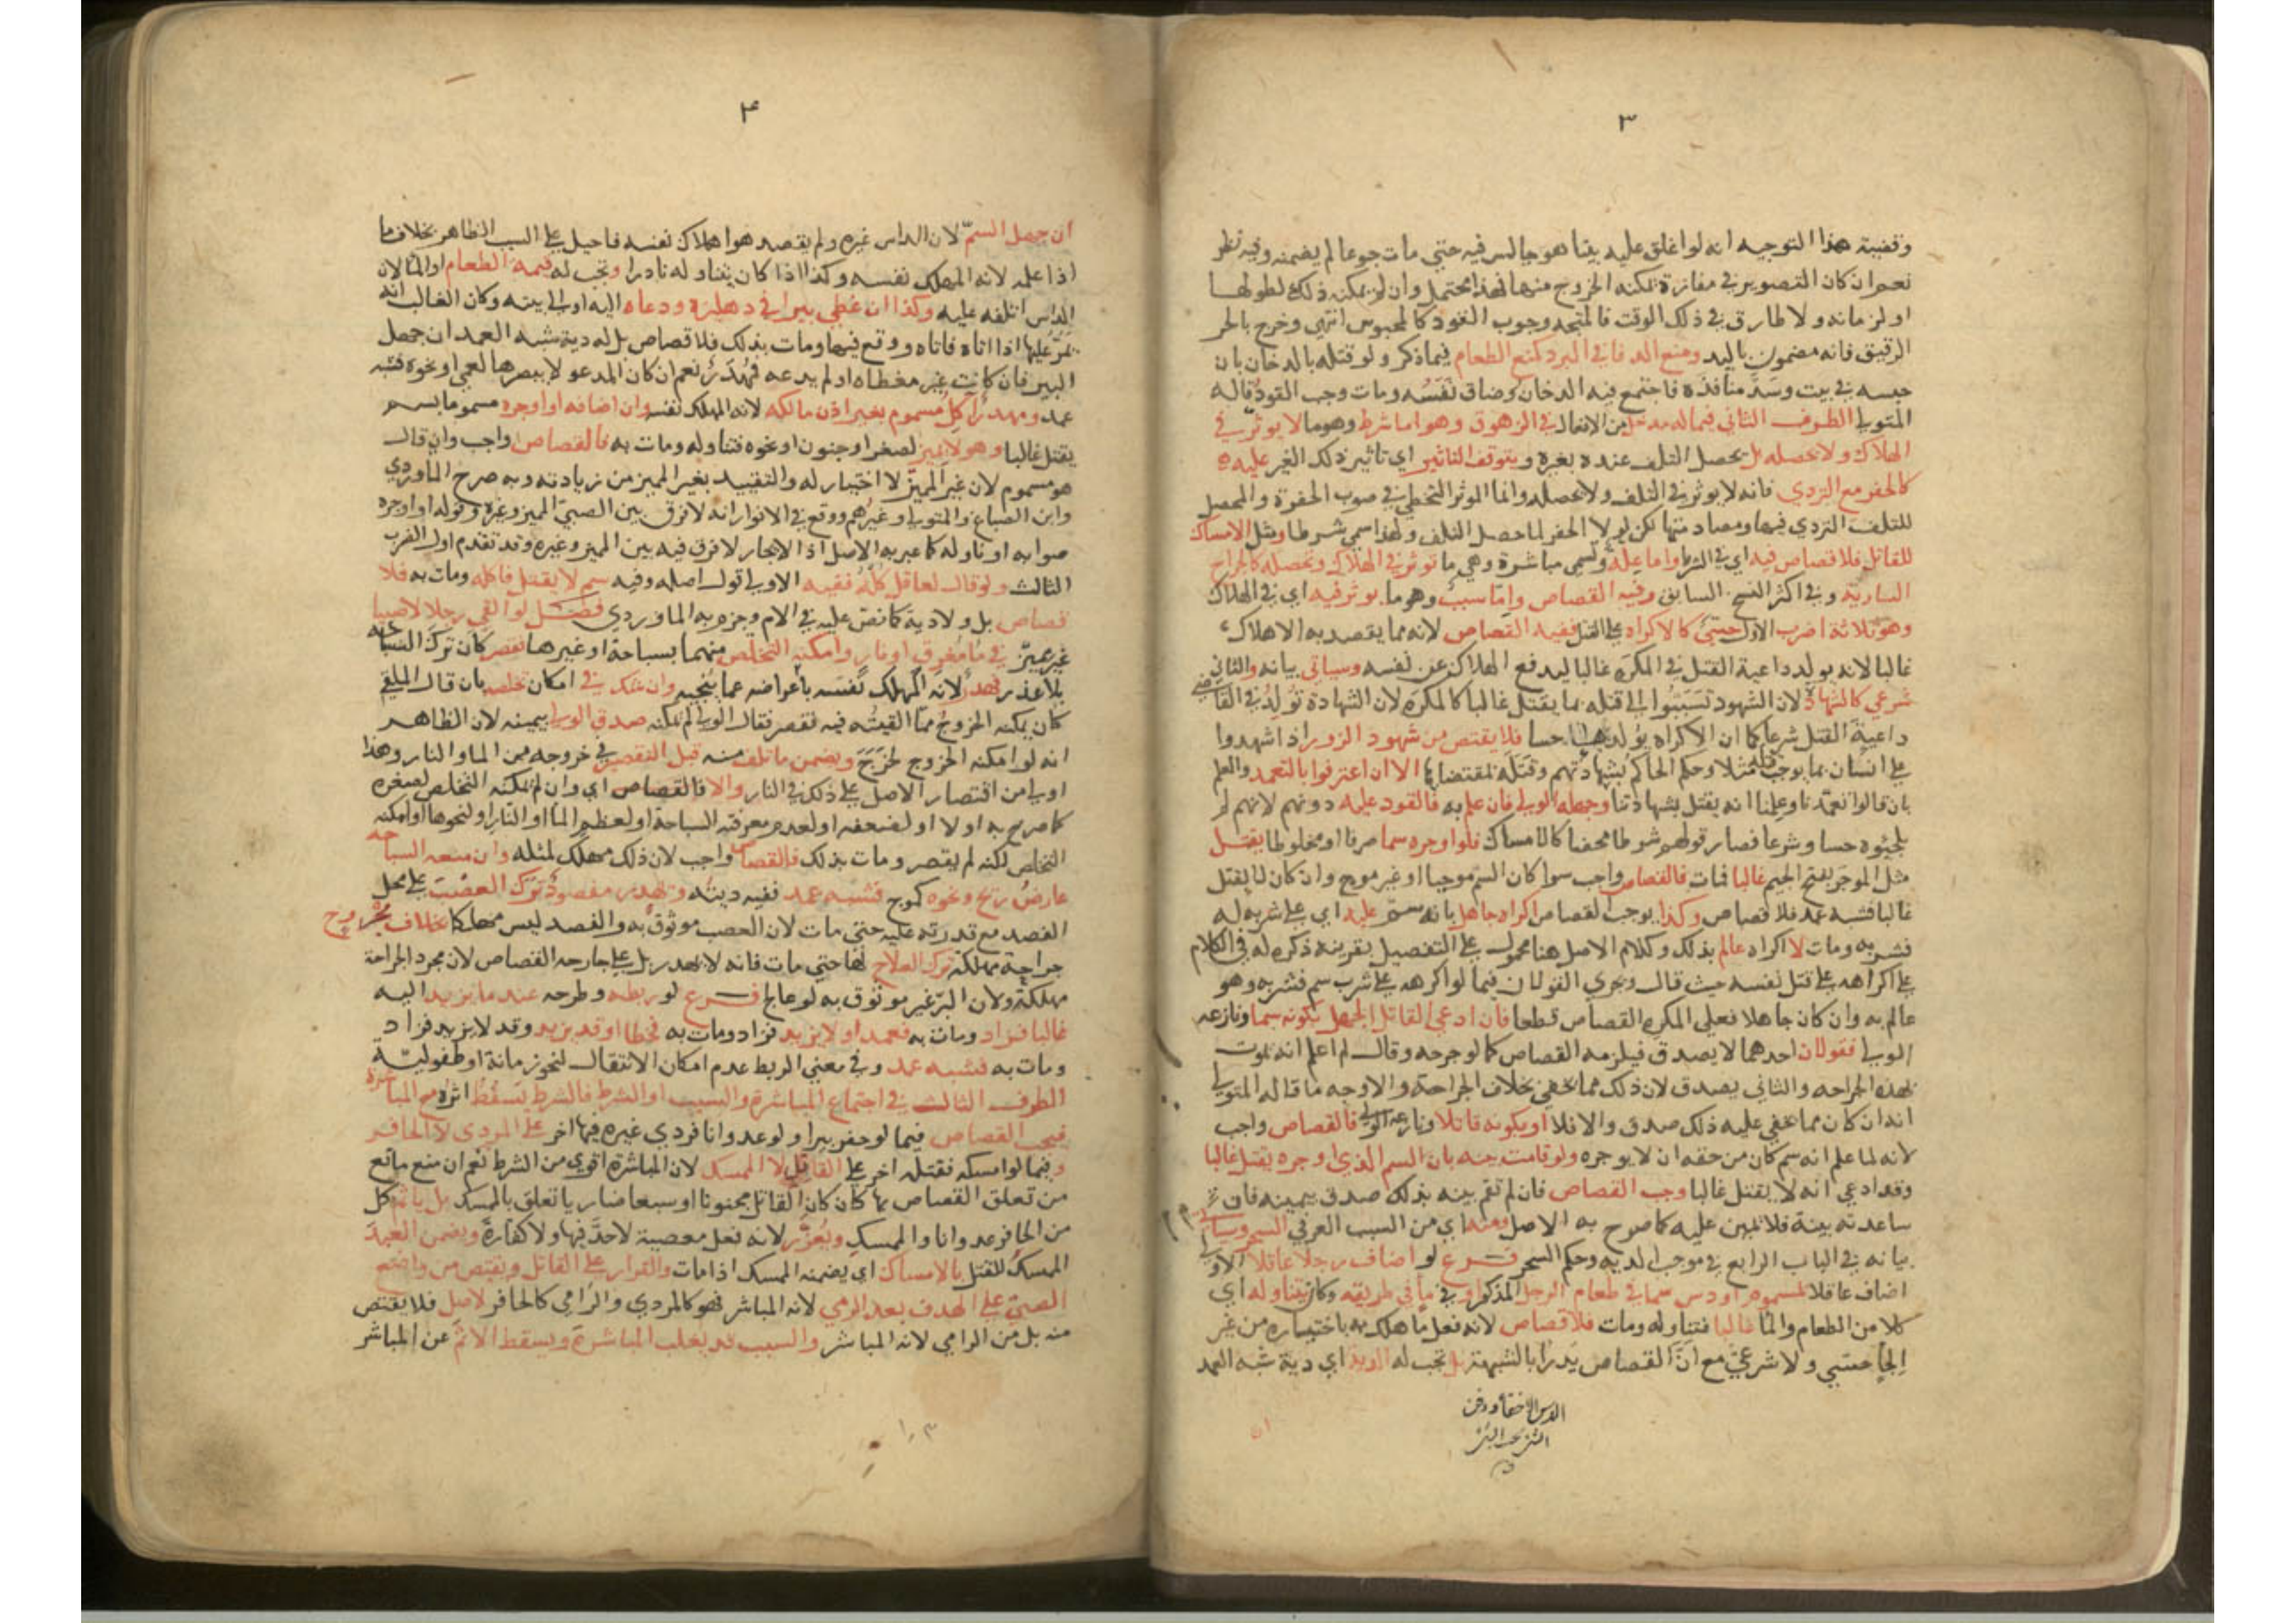 ٣
وقضية هذا التوجيه انه لو اغلق عليه بيتا هو جالس فيه حتي مات جوعا لم يضمنه وفيه نظر
نعم ان كان التصوير في مفازة يمكنه الخروج منها فهذا محتمل وان لم يمكنه ذلك لطولها
او لزمانه ولا طارق في ذلك الوقت فالمتجه وجوب القود كالمحبوس انتهي وخرج بالحر
الرقيق فانه مضمون باليد ومنع الدفا في البرد كمنع الطعام فيما ذكر ولو قتله بالدخان بان
حبسه في بيت وسد منافذه فاجتمع فيه الدخان وضاق نفسه ومات وجب القود قاله
المتولي الطرف الثاني فيما له مدخل من الافعال في الزهوق وهو اما شرط وهو ما لا يوثر في
الهلاك ولا يحصله بل يحصل التلف عنده بغيره ويتوقف التاثير اي تاثير ذلك الغير عليه
كالحفر مع التردي فانه لا يوثر في التلف ولا يحصله وانما الموثر التخطي في صوب الحفرة والمحصل
للتلف التردي فيها ومصادمتها لكن لولا الحفر لما حصل التلف ولهذا سمي شرطا ومثل الامساك
للقاتل فلا قصاص فيه اي في الشرط واما علة وتسمي مباشرة وهي ما توثر في الهلاك وتحصله كالجراح
السارية وفي اكثر النسخ السابق وفيه القصاص واما سبب وهو ما يوثر فيه اي في الهلاك
وهو ثلاثة اضرب الاول حسي كالاكراه علي القتل ففيه القصاص لانه مما يقصد به الاهلاك
غالبا لانه يولد داعية القتل في المكره غالبا ليدفع الهلاك عن نفسه وسياتي بيانه والثاني
شرعي كالشهادة لان الشهود تسببوا الي قتله بما يقتل غالبا كالمكره لان الشهادة تولد في القاضي
داعية القتل شرعا كما ان الاكراه يولدها حسا فلا يقتص من شهود الزور اذا شهدوا
علي انسان بما يوجب قتله مثلا وحكم الحاكم بشهادتهم وقتله بمقتضاها الا ان اعترفوا بالتعمد والعلم
بان قالوا تعمدنا وعلمنا انه يقتل بشهادتنا وجهله الولي فان علم به فالقود عليه دونهم لانهم لم
يلجئوه حسا وشرعا فصار قولهم شرطا محضا كالامساك فلو اوجره سما صرفا او مخلوطا يقتل
مثل الموجر بفتح الجيم غالبا فمات فالقصاص واجب سوا كان السم موحيا او غير موح وان كان لا يقتل
غالبا فشبه عمد فلا قصاص وكذا يوجب القصاص اكراه جاهل بانه سم عليه اي علي شربه له
فشربه ومات لا اكراه عالم بذلك وكلام الاصل هنا محمول علي التفصيل بقرينة ذكره له في الكلام
علي اكراهه علي قتل نفسه حيث قال ويجري القولان فيما لو اكرهه علي شرب سم فشربه وهو
عالم به وان كان جاهلا فعلي المكره القصاص قطعا فان ادعي القاتل الجهل بكونه سما ونازعه
الولي فقولان احدهما لا يصدق فيلزمه القصاص كما لو جرحه وقال لم اعلم انه يموت
بهذه الجراحه والثاني يصدق لان ذلك مما يخفي بخلاف الجراحة والاوجه ما قاله المتولي
انه ان كان مما يخفي عليه ذلك صدق والا فلا او بكونه قاتلا ونازعه الولي فالقصاص واجب
لانه لما علم انه سم كان من حقه ان لا يوجره ولو قامت بينه بان السم الذي اوجره يقتل غالبا
وقد ادعي انه لا يقتل غالبا وجب القصاص فان لم تقم بينه بذلك صدق بيمينه فان
ساعدته بينة فلا يمين عليه كما صرح به الاصل ومنه اي من السبب العرفي السحر وسياتي
بيانه في الباب الرابع في موجب الدية وحكم السحر فرع لو اضاف رجلا عاقلا الاولي
اضاف عاقلا لمسموم او دس سما في طعام الرجل المذكور او في ما في طريقه وكان يتناوله اي
كلا من الطعام والما غالبا فتناوله ومات فلا قصاص لانه فعل ما هلك به باختياره من غير
الجا حسي ولا شرعي مع ان القصاص يدرا بالشبهة بل تجب له الدية اي دية شبه العمد
ان
٤
ان جهل السم لان الداس غيره ولم يقصد هو اهلاك نفسه فاحيل علي السبب الظاهر بخلاف ما
اذا علمه لانه المهلك نفسه وكذا اذا كان يتناوله نادرا وتجب له قيمة الطعام او الما لان
الداس اتلفه عليه وكذا ان غطي بيرا في دهليزه ودعاه اليه او الي بيته وكان الغالب انه
يمر عليها اذا اتاه فاتاه ووقع فيها ومات بذلك فلا قصاص بل له دية شبه العمد ان جهل
البير فان كانت غير مغطاه او لم يدعه فهدر نعم ان كان المدعو لا يبصرها لعمي او نحوه فشبه
عمد ومهدر اكل مسموم بغير اذن مالكه لانه المهلك نفسه وان اضافه او اوجره مسموما بسم
يقتل غالبا وهو لا يميز لصغر او جنون او نحوه فتناوله ومات به فالقصاص واجب وان قال
هو مسموم لان غير المميز لا اختيار له والتقييد بغير المميز من زيادته وبه صرح الماوردي
وابن الصباغ والمتولي وغيرهم ووقع في الانوار انه لا فرق بين الصبي المميز وغيره وقوله او اوجره
صوابه او ناوله كما عبر به الاصل اذ الايجار لا فرق فيه بين المميز وغيره وقد تقدم اول الضرب
الثالث ولو قال لعاقل كله ففيه الاولي قول اصله وفيه سم لا يقتل فاكله ومات به فلا
قصاص بل ولا دية كما نص عليه في الام وجزم به الماوردي فصل لو القي رجلا لا صبيا
غير مميز في ما مغرق او نار وامكنه التخلص منهما بسباحة او غيرها فقصر كان ترك السباحة
بلا عذر فهدر لانه المهلك نفسه باعراضه عما ينجيه وان شك في امكان تخلصه بان قال الملقي
كان يمكنه الخروج مما القيته فيه فقصر فقال الولي لم يمكنه صدق الولي بيمينه لان الظاهر
انه لو امكنه الخروج لخرج ويضمن ما تلف منه قبل التقصير في خروجه من الما والنار وهذا
اولي من اقتصار الاصل علي ذلك في النار والا فالقصاص اي وان لم يمكنه التخلص لصغره
كما صرح به اولا او لضعفه او لعدم معرفته السباحة او لعظم الما او النار او لنحوها او امكنه
التخلص لكنه لم يقصر ومات بذلك فالقصاص واجب لان ذلك مهلك لمثله وان منعه السباحه
عارض ريح ونحوه كموج فشبه عمد ففيه ديته ويهدر مفصود ترك العصب علي محل
الفصد مع قدرته عليه حتي مات لان العصب موثوق به والفصد ليس مهلكا بخلاف مجروح
جراحة مهلكة ترك العلاج لها حتي مات فانه لا يهدر بل علي جارحه القصاص لان مجرد الجراحة
مهلكة ولان البر غير موثوق به لو عالج فرع لو ربطه وطرحه عند ما يزيد اليه
غالبا فزاد ومات به فعمد او لا يزيد فزاد ومات به فخطا او قد يزيد وقد لا يزيد فزاد
ومات به فشبه عمد وفي معني الربط عدم امكان الانتقال لنحو زمانة او طفولية
الطرف الثالث في اجتماع المباشرة والسبب او والشرط فالشرط يسقط اثره مع المباشرة
فيجب القصاص فيما لو حفر بيرا ولو عدوانا فردي غيره فيها اخر علي المردي لا الحافر
وفيما لو امسكه فقتله اخر علي القاتل لا الممسك لان المباشرة اقوي من الشرط نعم ان منع مانع
من تعلق القصاص بها كان كان القاتل مجنونا او سبعا ضاريا تعلق بالممسك بل ياثم كل
من الحافر عدوانا والممسك ويعزر لانه فعل معصية لا حد فيها ولا كفارة ويضمن العبد
الممسك للقتل بالامساك اي يضمنه الممسك اذا مات والقرار علي القاتل ويقتص من واضع
الصبي علي الهدف بعد الرمي لانه المباشر فهو كالمردي والرامي كالحافر لا قبل فلا يقتص
منه بل من الرامي لانه المباشر والسبب قد يغلب المباشرة ويسقط الاثم عن المباشر